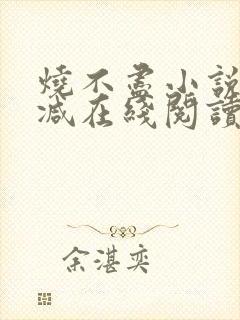 燒不盡小說
減在綫閱讀
余湛奕